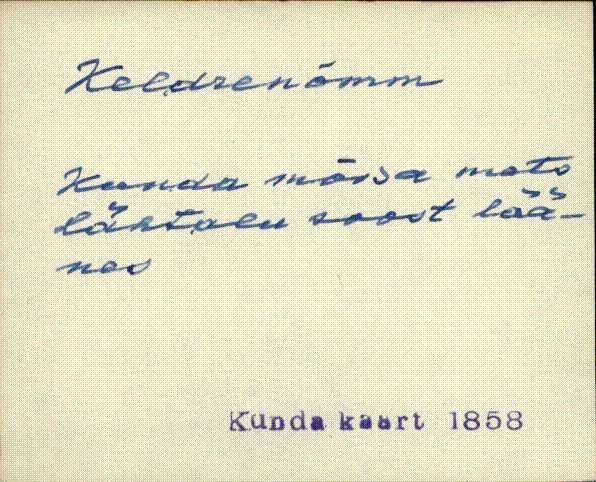 Keldrenõmm
Kunda mõisa mets
lähtalu soost lää-
nes
Kunda kaart 1858